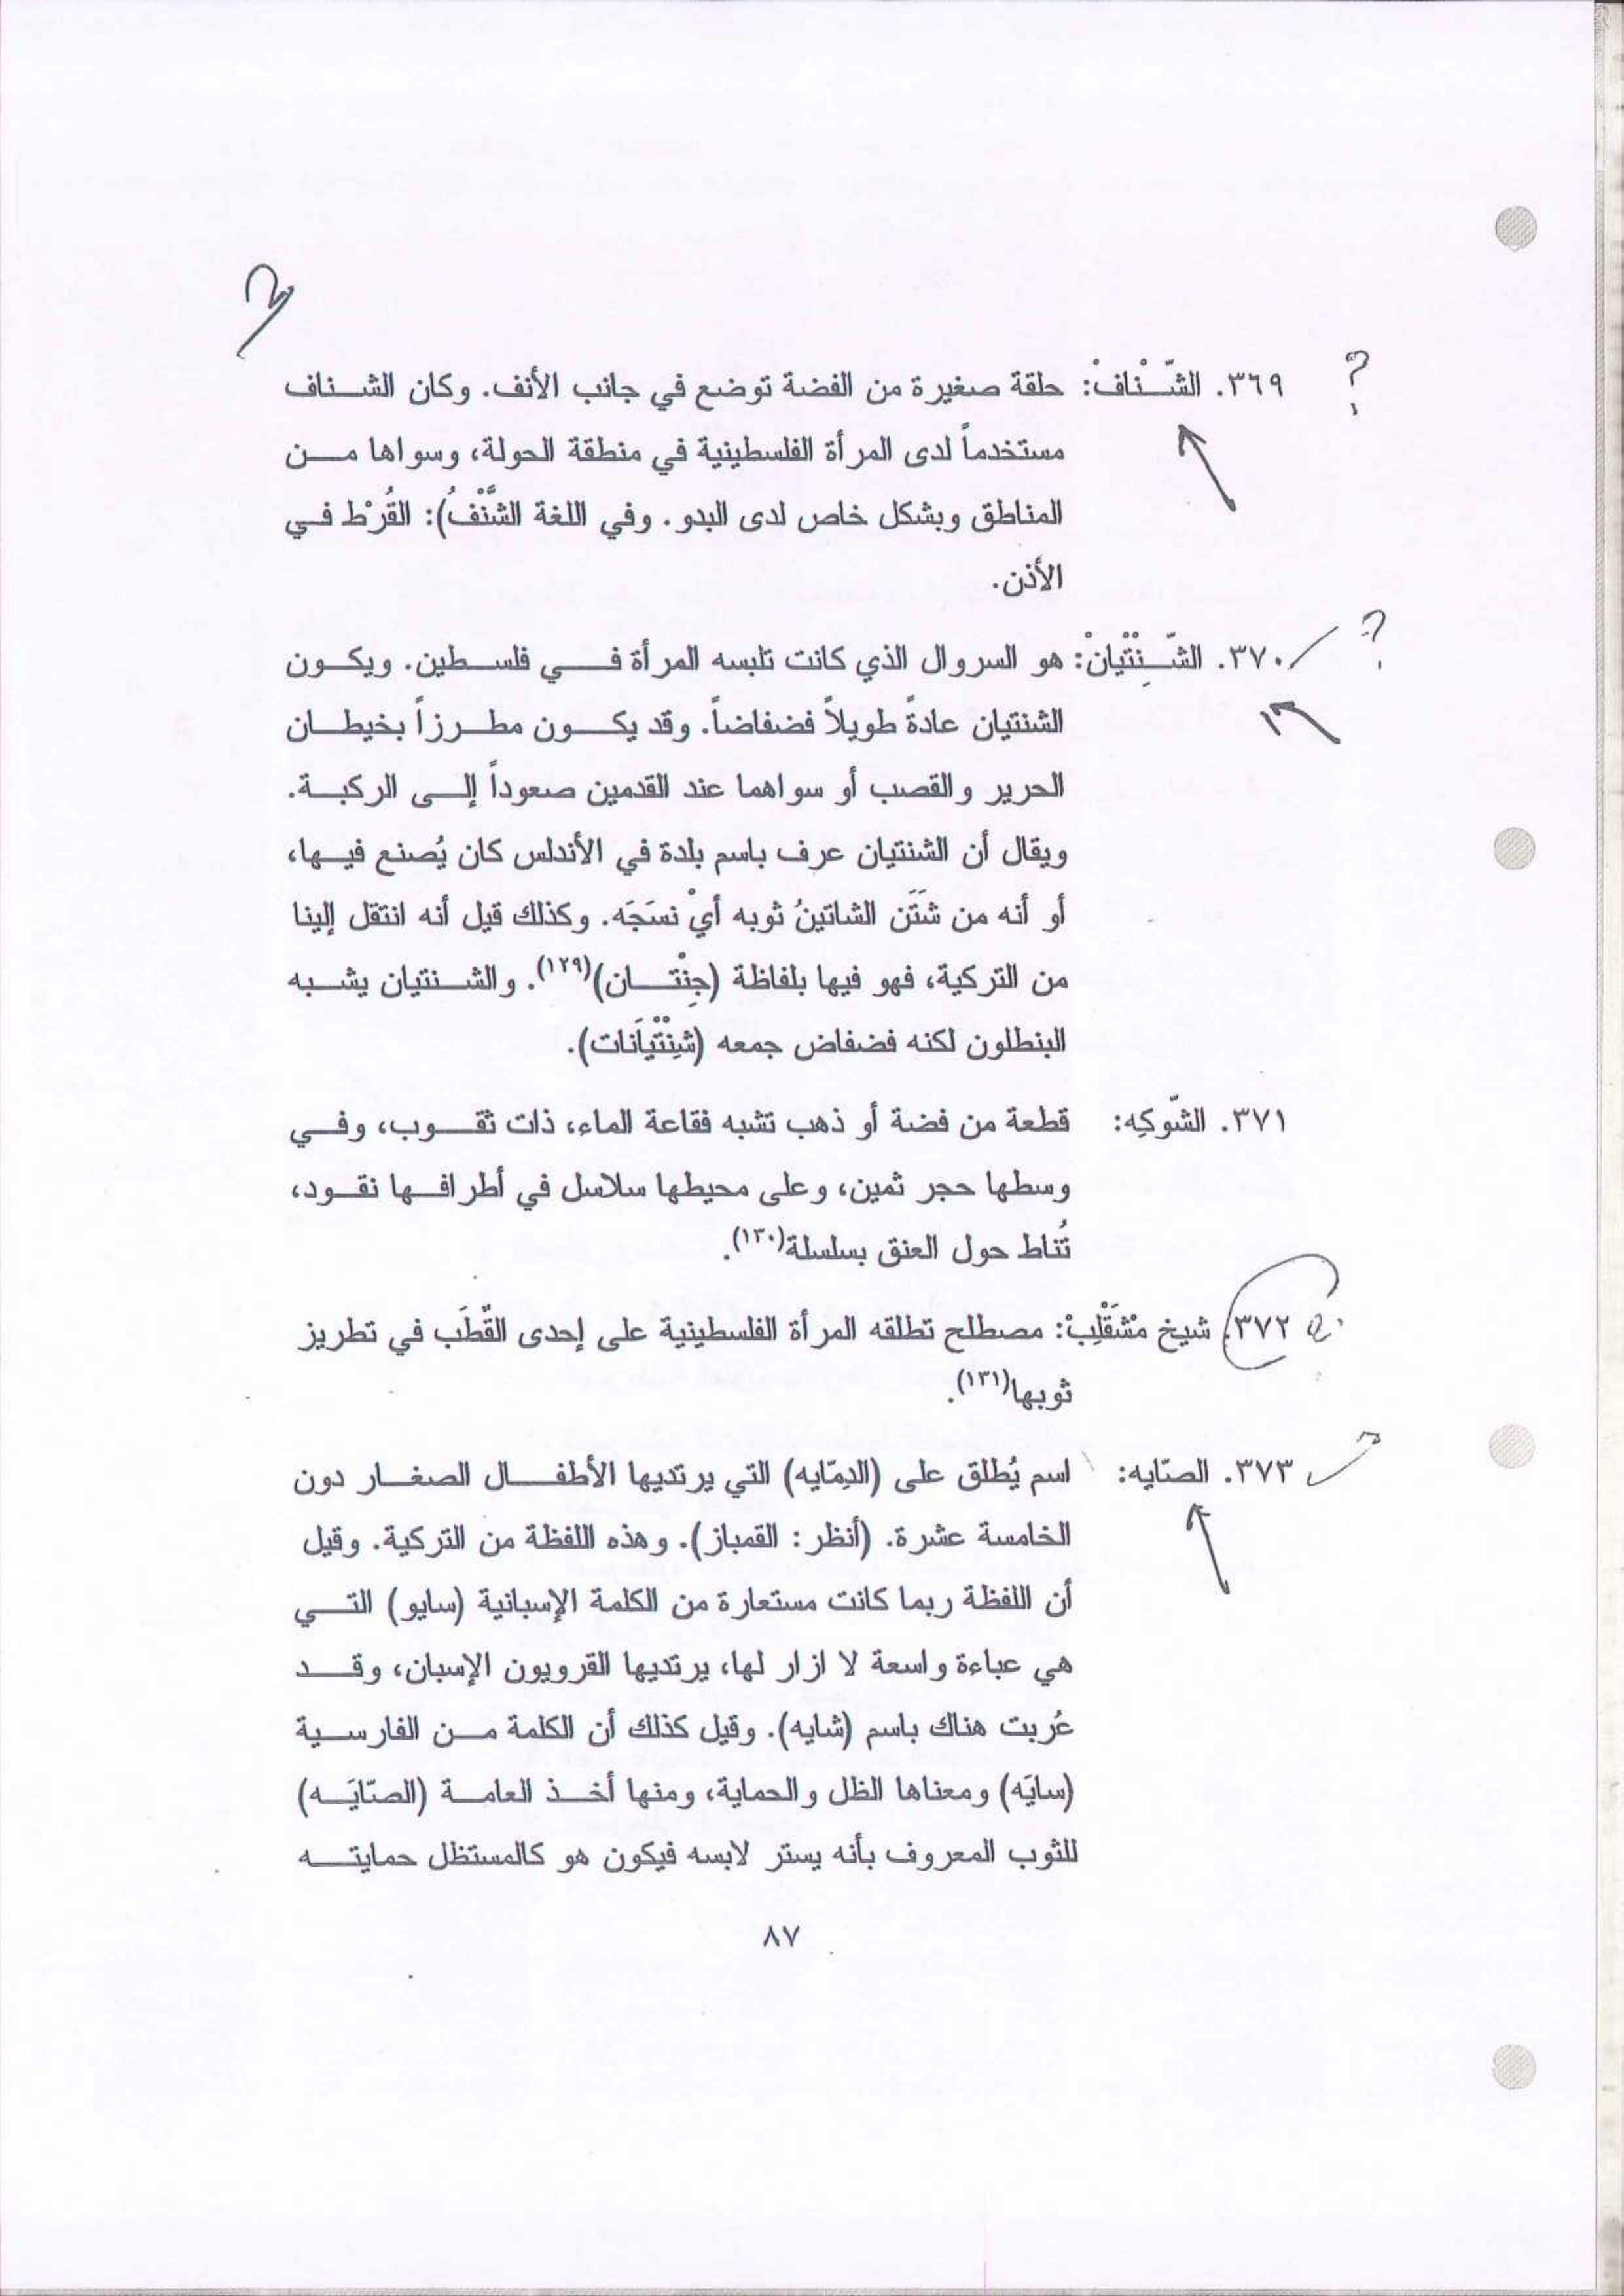 ?
٣٦٩. الشّْنافْ: حلقة صغيرة من الفضة توضع في جانب الأنف. وكان الشناف
مستخدماً لدى المرأة الفلسطينية في منطقة الحولة، وسواها من
المناطق وبشكل خاص لدى البدو. وفي اللغة الشَّنْفُ): القُرْط في
الأذن.
?
٣٧٠. الشِّنْتْيانْ: هو السروال الذي كانت تلبسه المرأة في فلسطين. ويكون
الشنتيان عادةً طويلاً فضفاضاً. وقد يكون مطرزاً بخيطان
الحرير والقصب أو سواهما عند القدمين صعوداً إلى الركبة.
ويقال أن الشنتيان عرف باسم بلدة في الأندلس كان يُصنع فيها،
أو أنه من شَتَن الشاتينُ ثوبه أيْ نسَجَه. وكذلك قيل أنه انتقل إلينا
من التركية، فهو فيها بلفاظة (جِنْتان)(١٢٩). والشنتيان يشبه
البنطلون لكنه فضفاض جمعه (شِنْتْيَانات).
٣٧١. الشّوكِه: قطعة من فضة أو ذهب تشبه فقاعة الماء، ذات ثقوب، وفي
وسطها حجر ثمين، وعلى محيطها سلاسل في أطرافها نقود،
تُناط حول العنق بسلسلة(١٣٠).
٣٧٢. شيخ مْشَقْلِبْ: مصطلح تطلقه المرأة الفلسطينية على إحدى القُطَب في تطريز
ثوبها(١٣١).
٣٧٣. الصّايه: اسم يُطلق على (الدِمّايه) التي يرتديها الأطفال الصغار دون
الخامسة عشرة. (أنظر: القمباز). وهذه اللفظة من التركية. وقيل
أن اللفظة ربما كانت مستعارة من الكلمة الإسبانية (سايو) التي
هي عباءة واسعة لا ازار لها، يرتديها القرويون الإسبان، وقد
عُربت هناك باسم (شايه). وقيل كذلك أن الكلمة من الفارسية
(سايَه) ومعناها الظل والحماية، ومنها أخذ العامة (الصّايَه)
للثوب المعروف بأنه يستر لابسه فيكون هو كالمستظل حمايته
٨٧